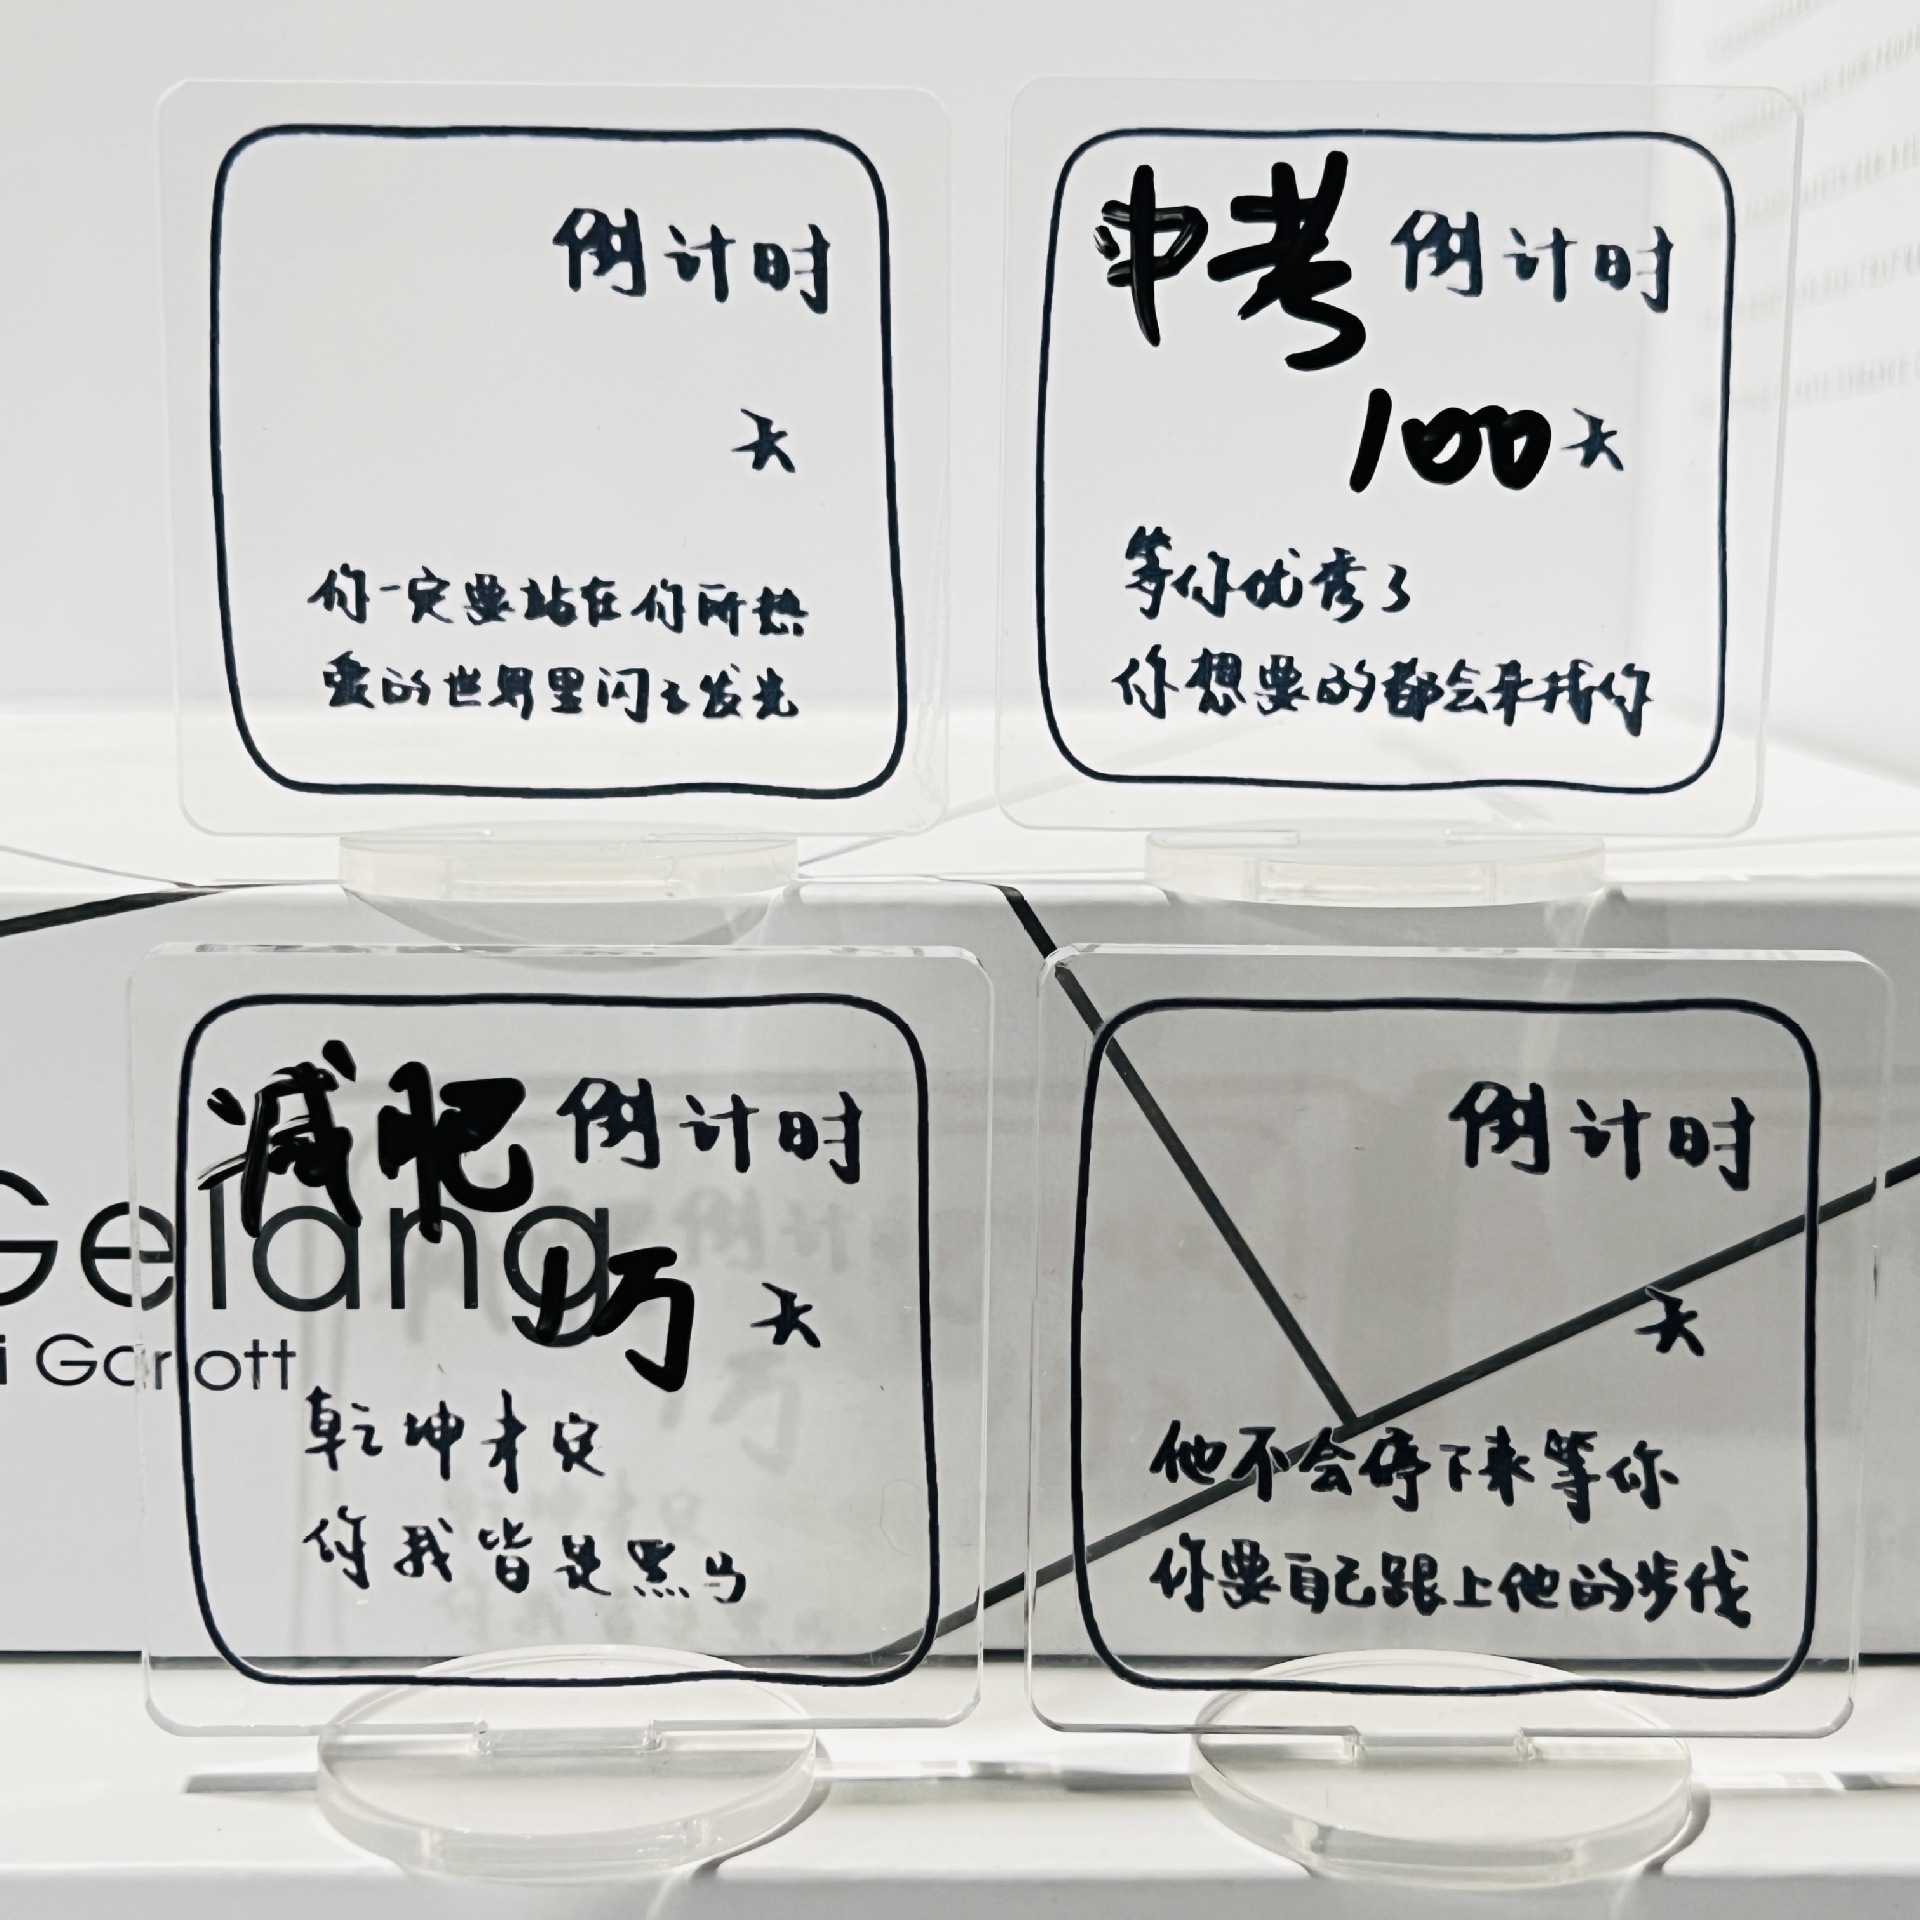 倒计时
天
你一定要站在你所热
爱的世界里闪闪发光
中考倒计时
100天
等你优秀了
你想要的都会来找你
减肥倒计时
1万天
乾坤未定
你我皆是黑马
倒计时
天
他不会停下来等你
你要自己跟上他的步伐
Gelang
i Garott